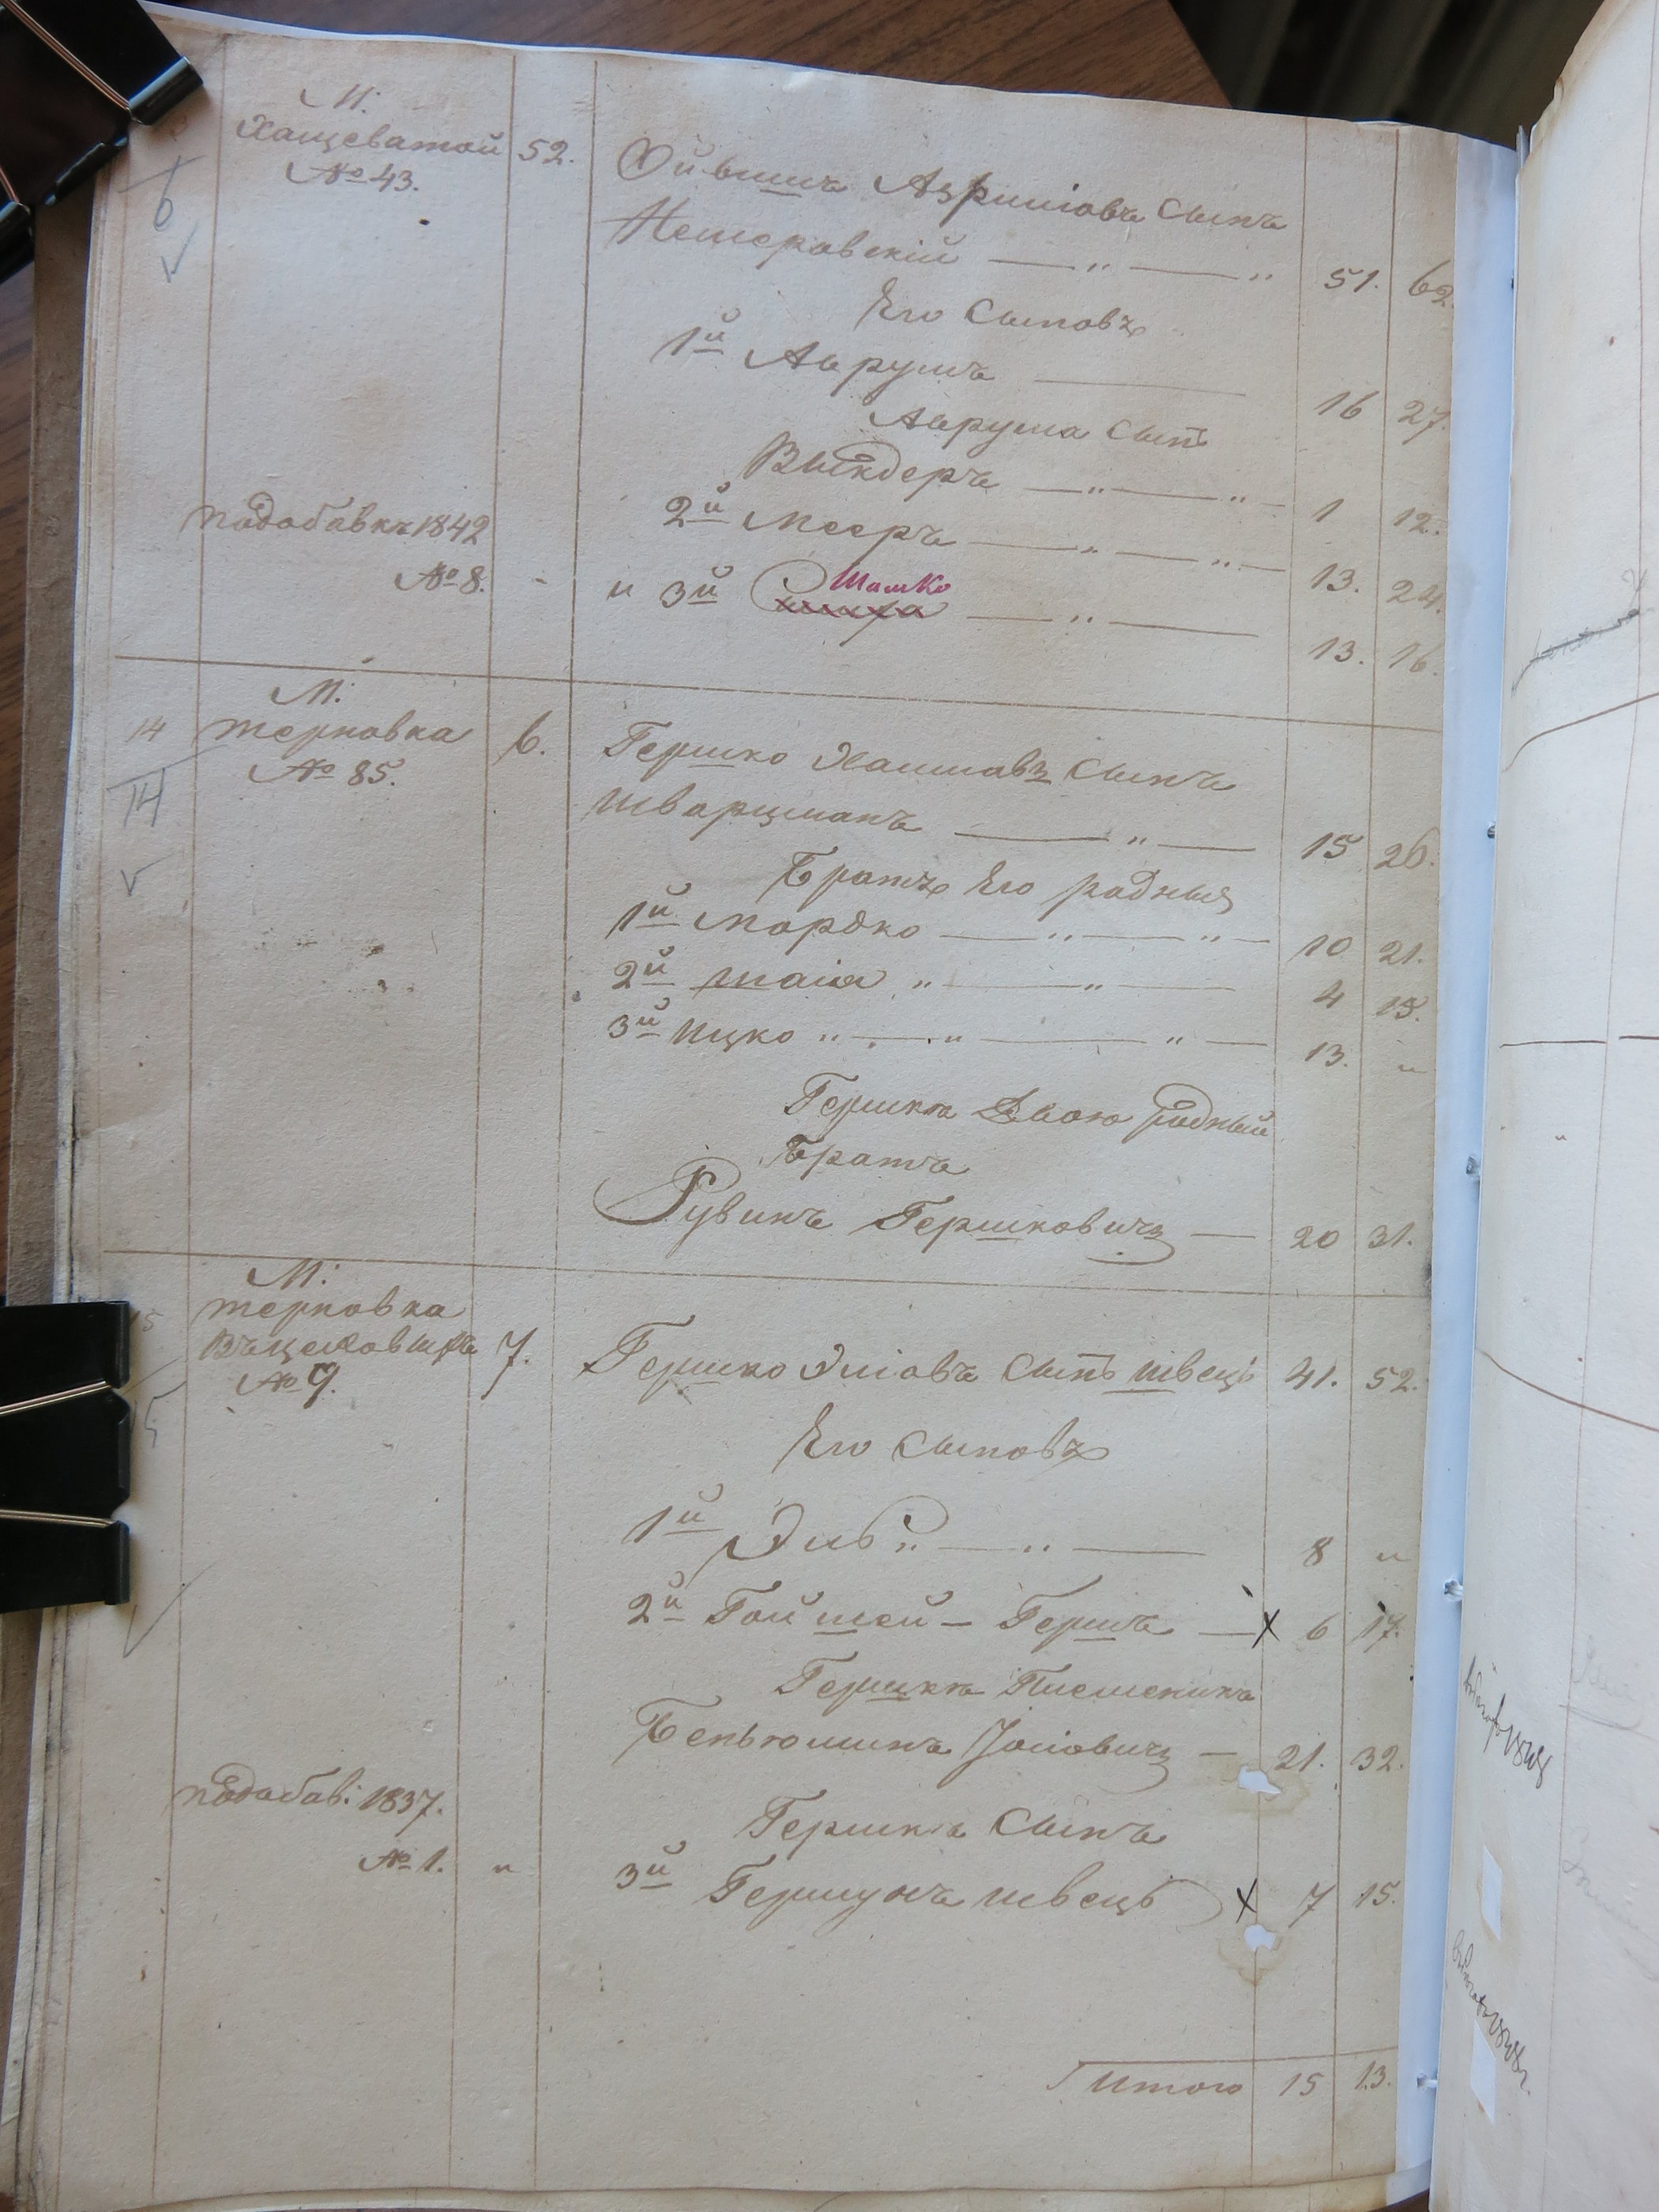 М:
Хащеватой 52.
№ 43.
6
Ойвишъ Аврумовъ Сынъ
Немеровскій 51. 62.
Его Сыновъя
1й Аврумъ 16 27.
Аврума Сынъ
Выгдеръ 1 12.
2й Мееръ 13. 24.
подобавкъ 1842
№ 8.
и 3й Шамко 13. 16.
М:
14 Терновка 6.
№ 85.
14
Гершко Хаимовъ Сынъ
Шварцманъ 15 26.
Братья Его родныя
1й Мордко 10 21.
2й Шаія 4 15.
3й Ицко 13. "
Гершка Двоюродный
Братъ
Рувинъ Гершковичъ 20 31.
М:
15 Терновка
№ 9. 7.
Гершко Эліовъ Сынъ Швецъ 41. 52.
Его Сыновъя
1й 8 "
2й Гойшей - Гершъ х 6 17.
Гершка Племеникъ
Беньюминъ Іосіовичъ 21. 32.
подобав: 1837.
№ 1. "
Гершка Сынъ
3й Гершунъ Швецъ х 7 15.
Итого 15 13.